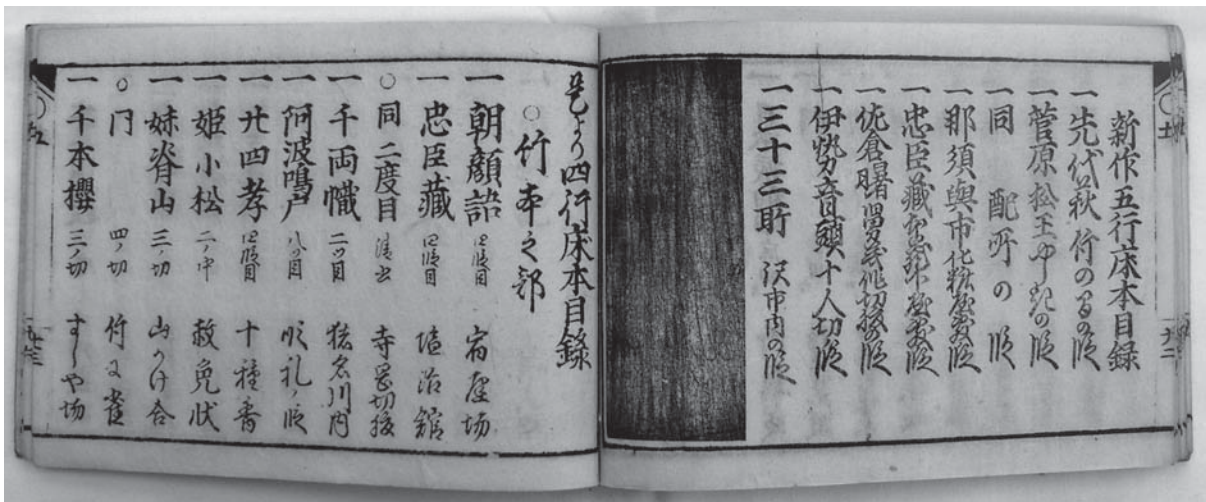 新作五行床本目録
一先代萩 竹のまの段
一菅原松王やしきの段
一同 配所の段
一那須與市化粧屋敷の段
一忠臣藏
一佐倉曙
一伊勢音頭十人切段
一三十三所 沢市内の段
是より四行床本目録
○竹本之部
一朝顔話 四段目 宿屋場
一忠臣藏 四段目 塩冶館
○同二度目 清書 寺岡切腹
一千両幟 二ツ目 猪名川内
一阿波鳴戸 八ツ目 順礼ノ段
一廿四孝 四段目 十種香
一姫小松 二ノ中 赦免状
一妹脊山 三ノ切 山かけ合
○同 四ノ切 竹に雀
一千本櫻 三ノ切 すしや場